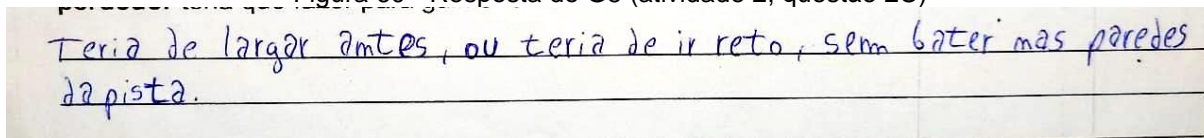 Teria de largar amtes, ou teria de ir reto, sem bater mas paredes
da pista.